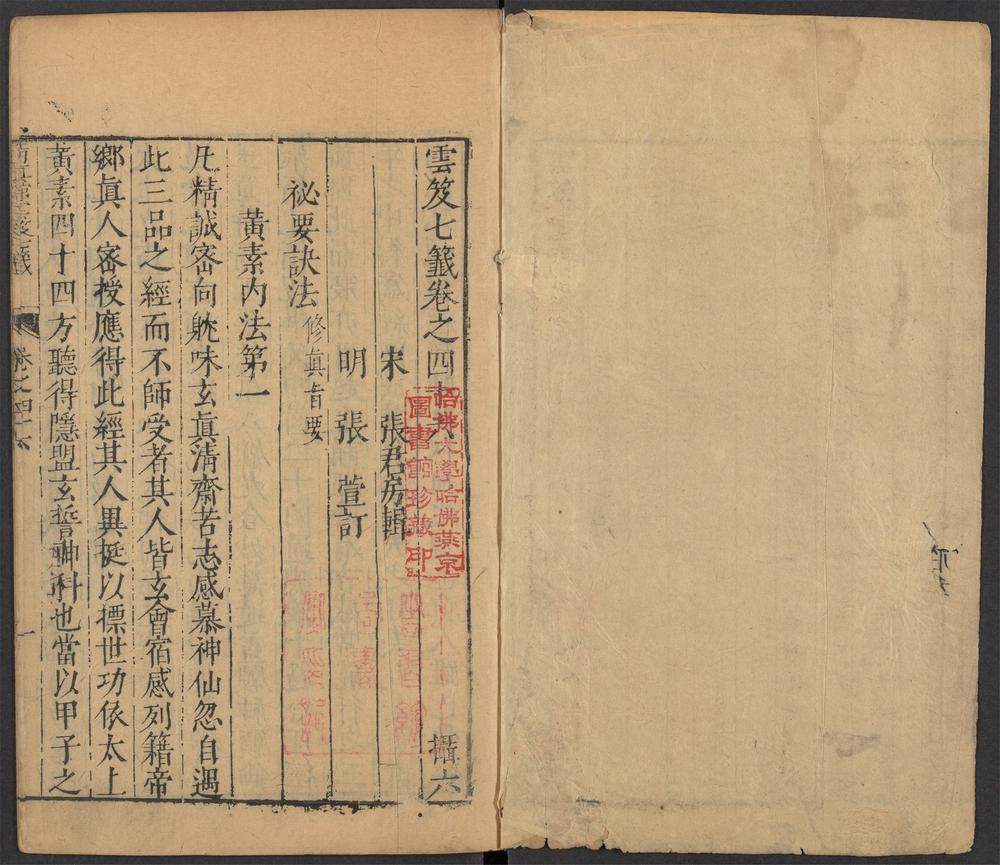 雲笈七籤卷之四十六 攝六
宋 張君房輯
明 張 萱訂
祕要訣法修眞旨要
黃素內法第一
凡精誠密向躭味玄眞淸齋苦志感慕神仙忽自遇
此三品之經而不師受者其人皆玄會宿感列籍帝
鄉眞人密授應得此經其人異挺以摽世功依太上
黃素四十四方聽得隱盟玄誓神科也當以甲子之
卷之四十六 一
哈佛大學哈佛燕京
圖書館珍藏印